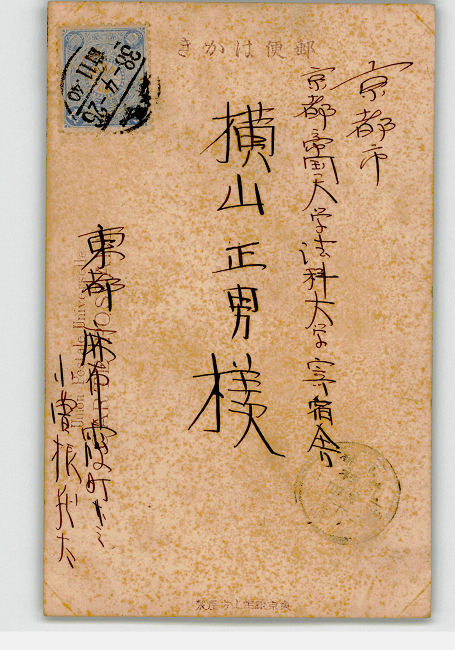 郵便はかき
京都市
京都帝国大学法科大学寄宿舎
横山正男様
東都麻布霞町
小曽根
Union Postale Universelle
38-4-25